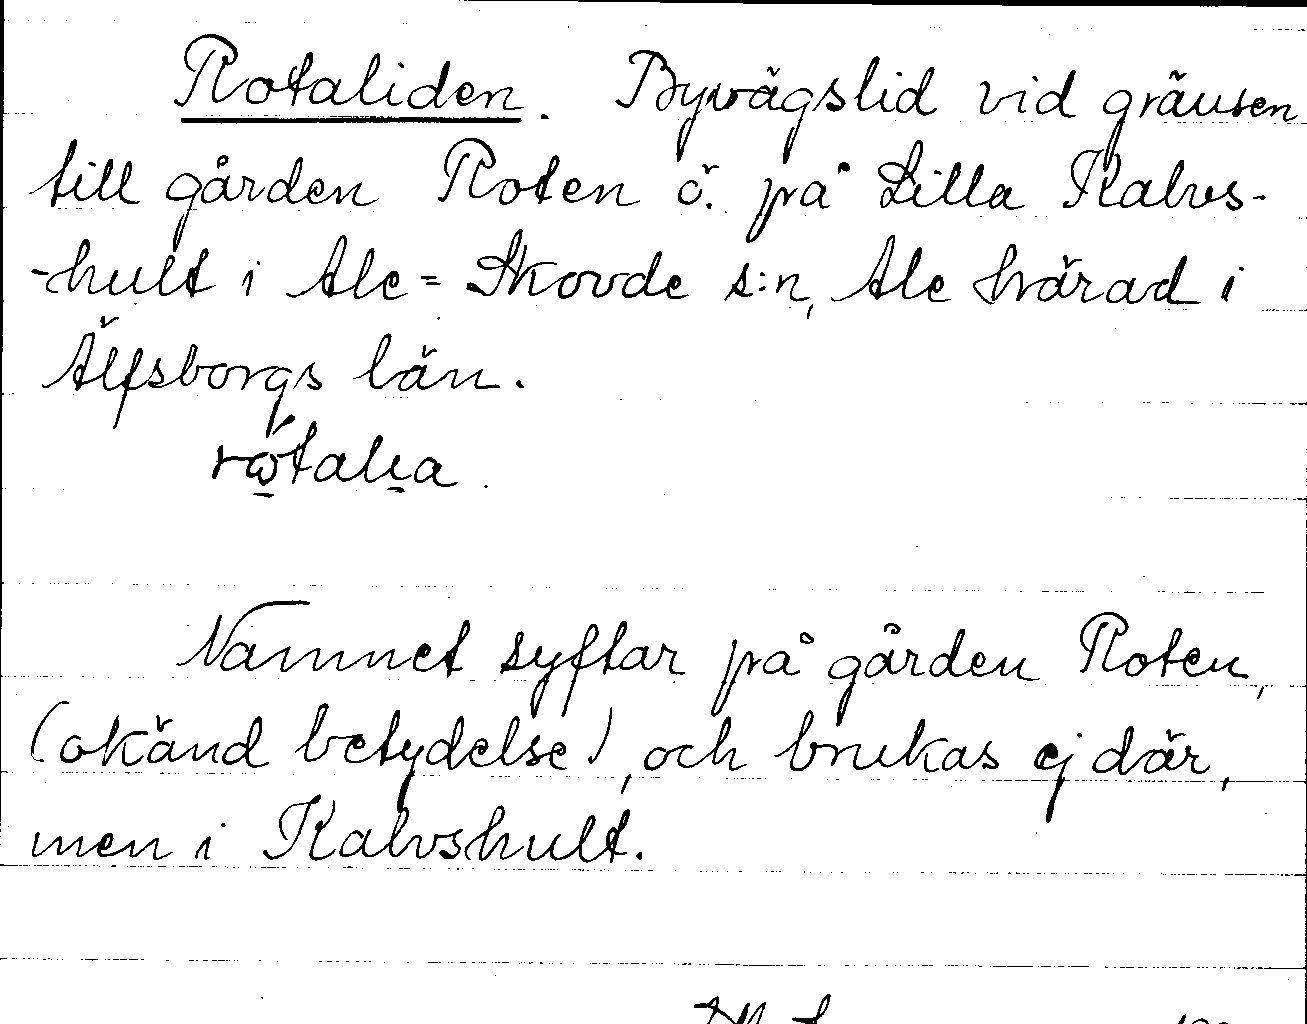 Rotaliden. Byvägslid vid gränsen
till gården Roten ö. på Lilla Kalvs-
-hult i Ale=Skövde s:n, Ale härad i
Älfsborgs län.
Namnet syftar på gården Roten,
(okänd betydelse), och brukas ej där,
men i Kalvshult.